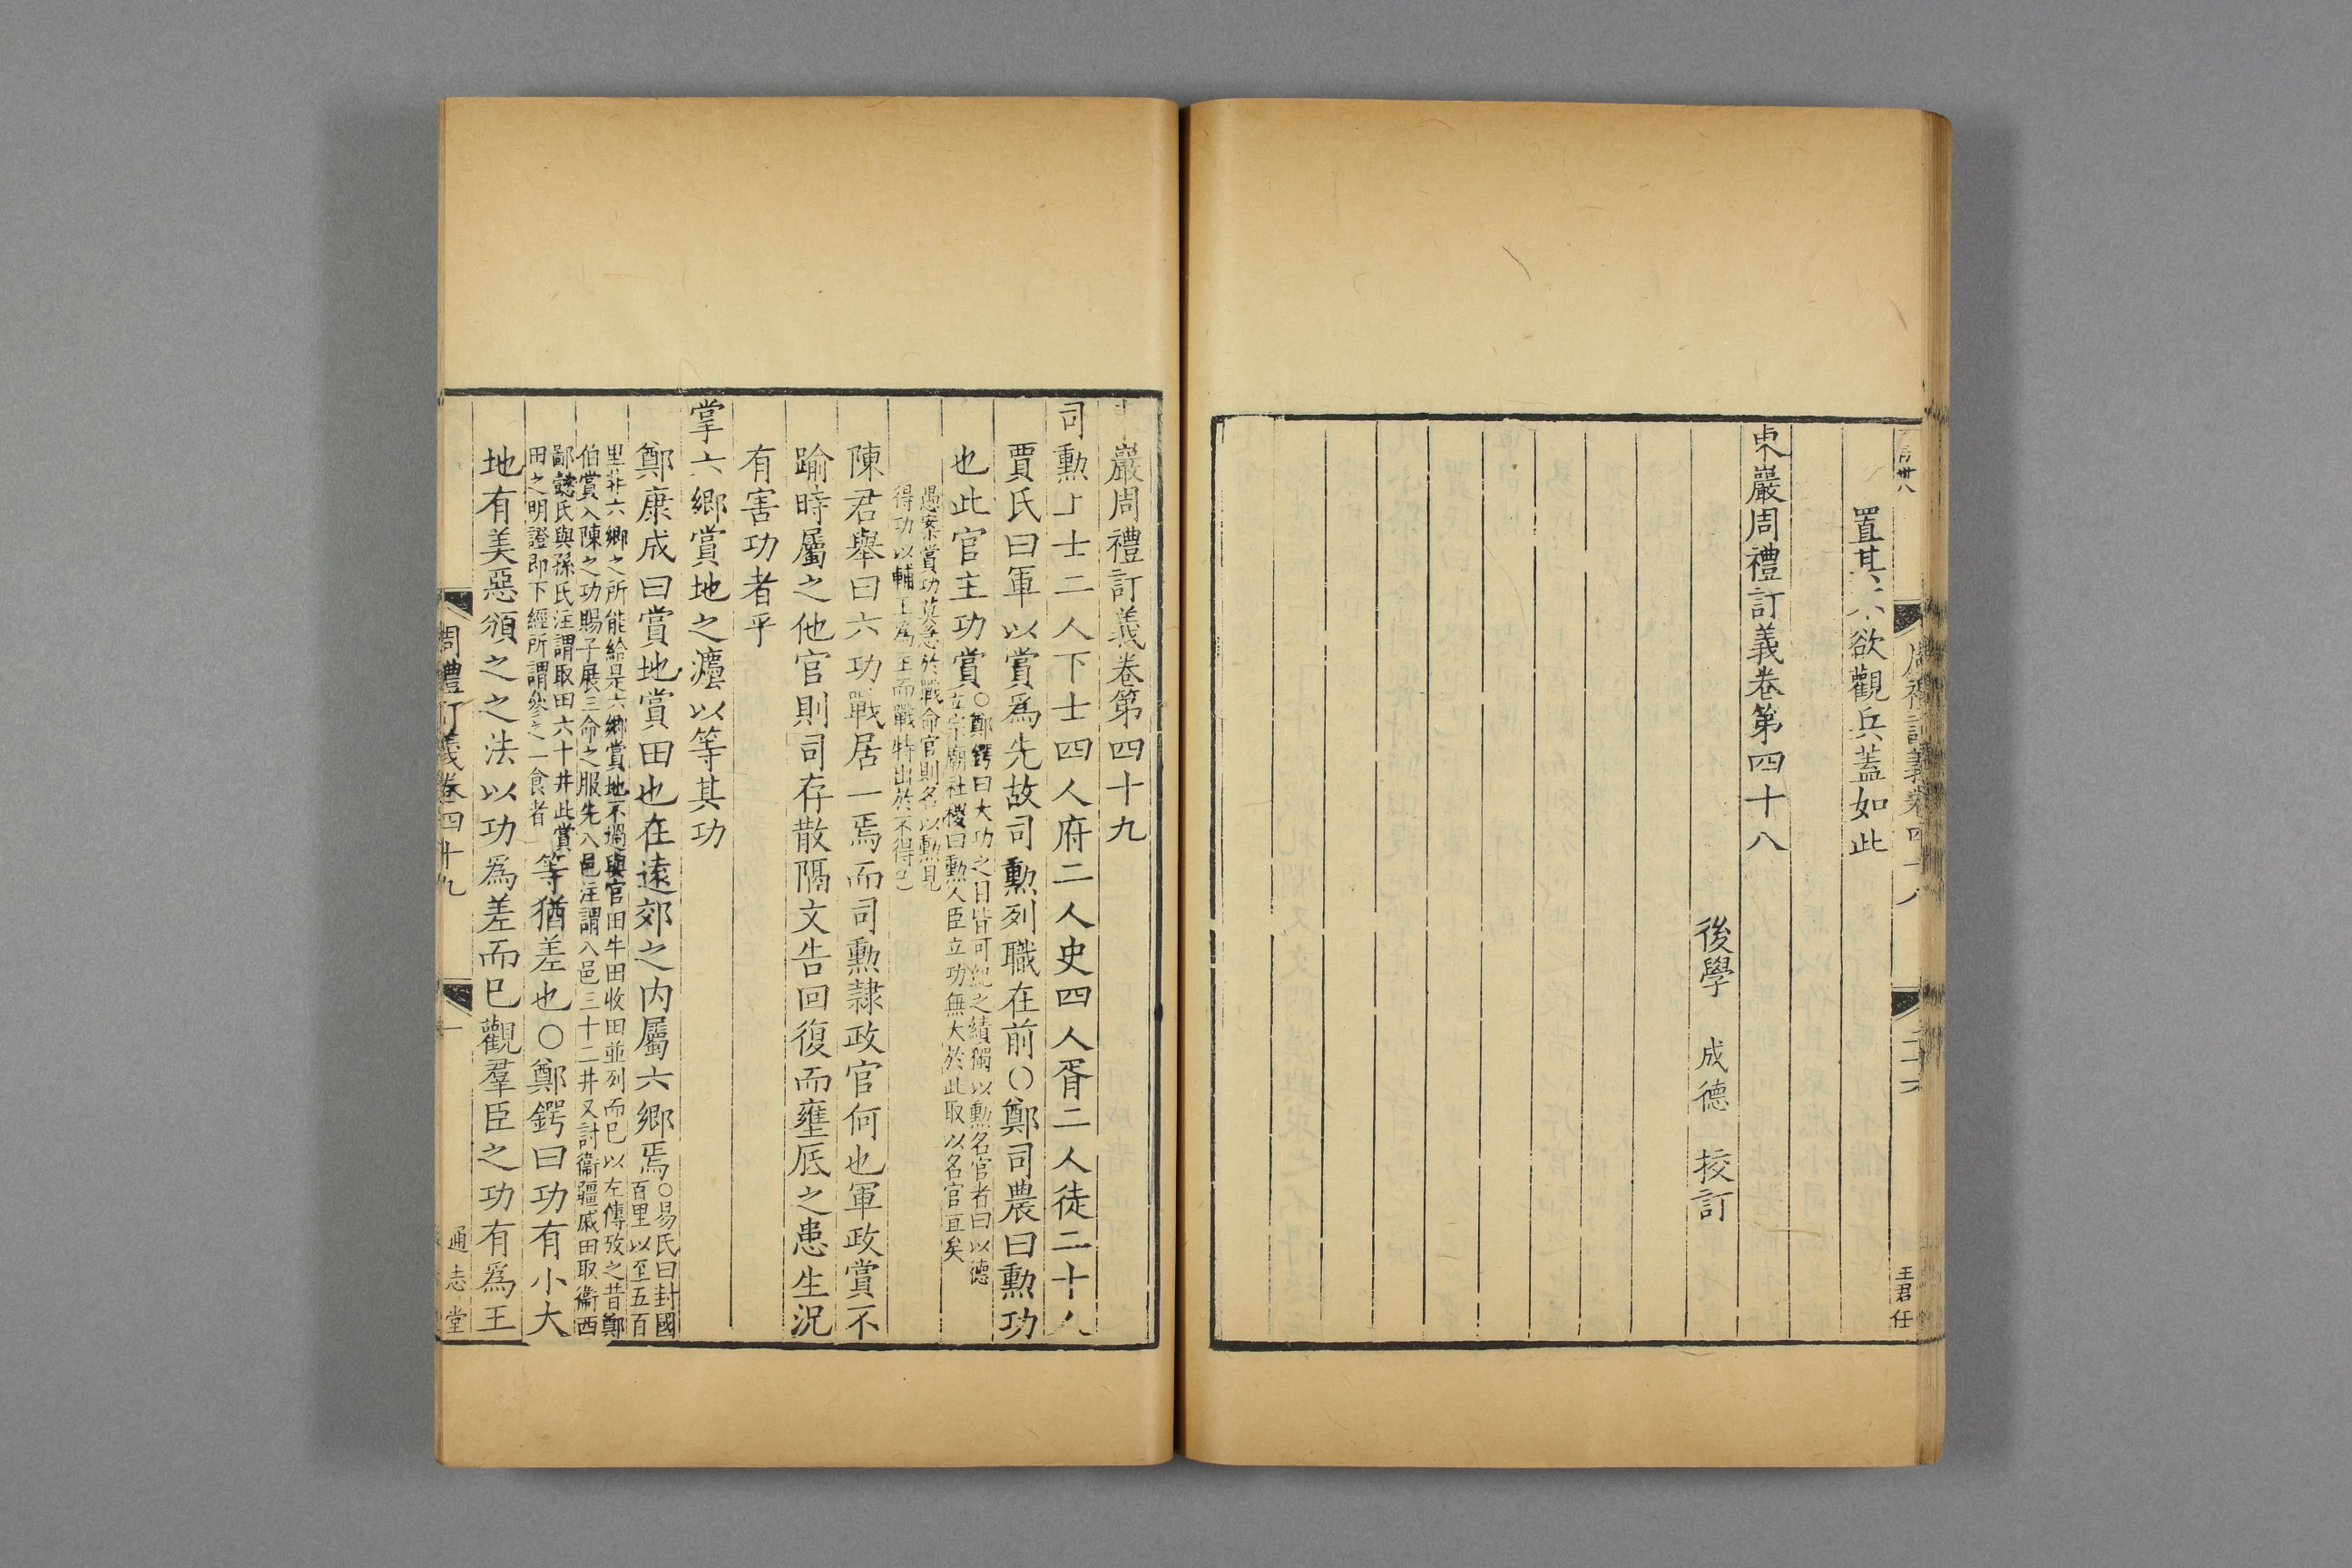 置其不欲觀兵蓋如此
東巖周禮訂義卷第四十八
後學 成德 挍訂
周禮訂義卷四十八 二十六 王君任
巖周禮訂義卷第四十九
司勲上士二人下士四人府二人史四人胥二人徒二十人
賈氏曰軍以賞爲先故司勲列職在前○鄭司農曰勲功
也此官主功賞○鄭鍔曰大功之日皆可紀之績獨以勲名官者曰以德
立宗廟社稷曰勲人臣立功無大於此取以名官宜矣
愚案賞功莫急於戰命官則名以勲見
得功以輔王爲主而戰特出於不得已
陳君舉曰六功戰居一焉而司勲隷政官何也軍政賞不
踰時屬之他官則司存散隔文告回復而壅底之患生況
有害功者乎
掌六鄉賞地之灋以等其功
鄭康成曰賞地賞田也在遠郊之内屬六鄉焉○易氏曰封國
百里以至五百
里井六鄉之所能給是六鄉賞地不過與官田牛田收田並列而已以左傳攷之昔鄭
伯賞入陳之功賜子展三命之服先八邑注謂八邑三十二井又討衞疆戚田取衞西
鄙懿氏與孫氏注謂取田六十井此賞
田之明證即下經所謂參之一食者
等猶差也○鄭鍔曰功有小大
地有美惡頒之之法以功爲差而已觀羣臣之功有爲王
周禮訂義卷四十九 一 通志堂